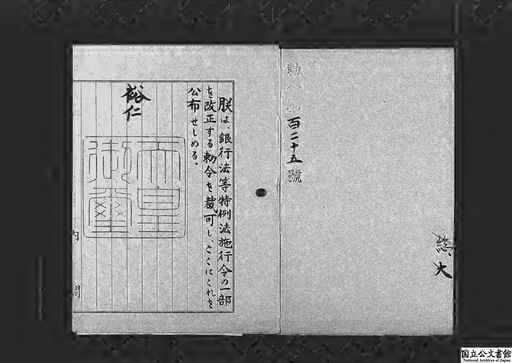 勅令第百二十五號
大
朕は、銀行法等特例法施行令の一部
を改正する勅令を裁可し、ここにこれを
公布せしめる。
裕仁
天皇御璽
内閣
国立公文書館
National Archives of Japan